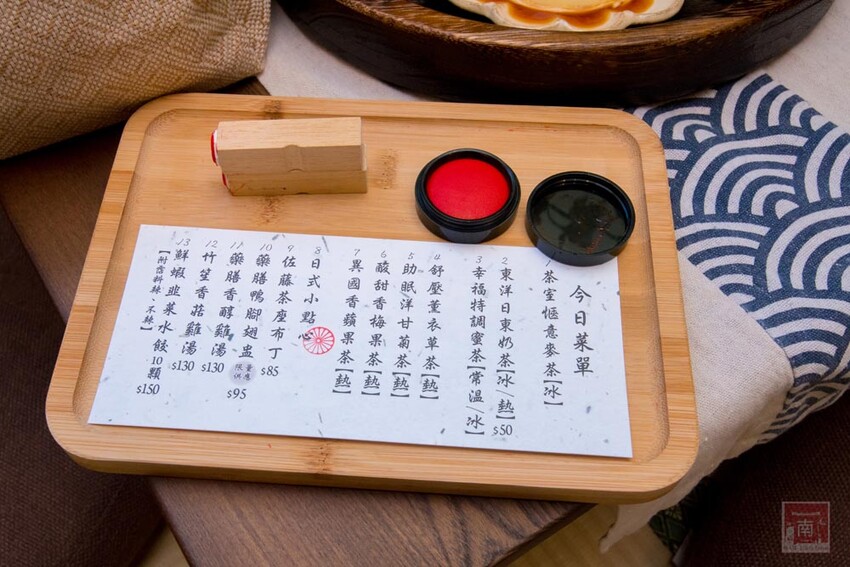 今日菜單
1 茶室愜意麥茶【冰】
2 東洋日東奶茶【冰/熱】$50
3 幸福特調蜜茶【常溫/冰】
4 舒壓薰衣草茶【熱】
5 助眠洋甘菊茶【熱】
6 酸甜香梅果茶【熱】
7 異國香蘋果茶【熱】
8 日式小點心
9 佐藤茶座布丁 $85
10 藥膳鴨腳翅盅 限量供應 $95
11 藥膳香醇雞湯 $130
12 竹笙香菇雞湯 $130
13 鮮蝦韭菜水餃10顆 $150
【附醬料辣、不辣】
南